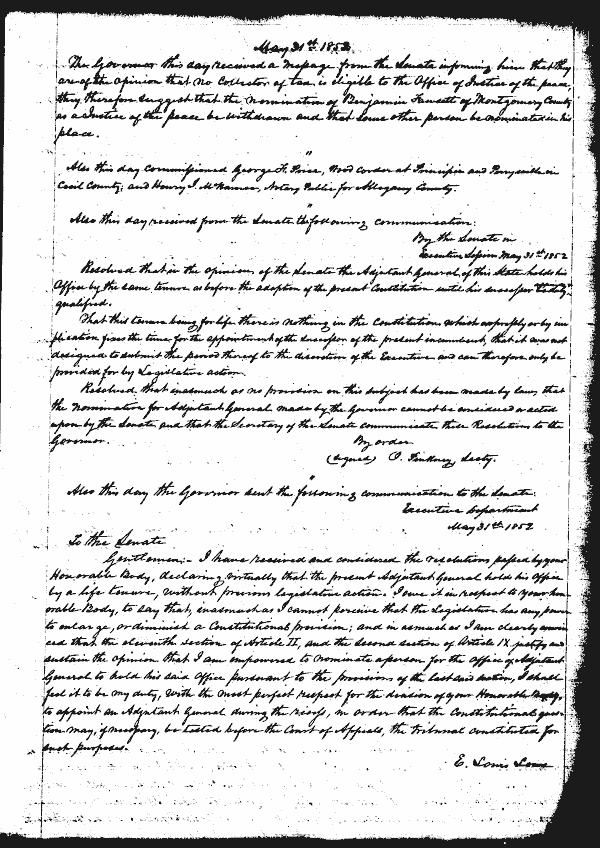 May 31st 1852
The Governor this day received a message from the Senate informing him that they
are of the opinion that no Collector of tax is eligible to the Office of Justice of the peace,
they therefore suggest that the nomination of Benjamin of Montgomery County
as a Justice of the peace be withdrawn and that some other person be nominated in his
place.
"
Also this day commissioned George F. Price, Wood Corder at Principio and Perryville in
Cecil County; and Henry I. McNamee, Notary Public for Allegany County.
"
Also this day received from the Senate the following communication:
By the Senate in
Executive Session May 31st 1852
Resolved that in the opinion of the Senate the Adjutant General of this State holds his
Office by the same tenure as before the adoption of the present Constitution until his successor is duly
qualified.
That this tenure being for life there is nothing in the Constitution which expressly or by im
plication fixes the time for the appointment of the successor of the present incumbent, that it was not
designed to submit the period thereof to the discretion of the Executive and can therefore only be
provided for by Legislative action.
Resolved that inasmuch as no provision on this subject has been made by law, that
the nomination for Adjutant General made by the Governor cannot be considered or acted
upon by the Senate and that the Secretary of the Senate communicate these Resolutions to the
Governor.
By order
(signed) O. Pinkney, Secty.
"
Also this day the Governor sent the following communication to the Senate:
Executive Department
May 31st 1852
To the Senate
Gentlemen:- I have received and considered the resolutions passed by your
Honorable Body, declaring virtually that the present Adjutant General holds his Office
by a life tenure, without previous legislative action. I owe it in respect to your hon
orable Body, to say that, inasmuch as I cannot perceive that the Legislature has any power
to enlarge, or diminish a Constitutional provision; and in asmuch as I am clearly convin
ced that the eleventh section of Article II, and the second section of Article IX justify and
sustain the opinion that I am empowered to nominate a person for the office of Adjutant
General to hold his said Office pursuant to the provisions of the last said section, I should
feel it to be my duty, with the most perfect respect for the decision of your Honorable Body,
to appoint an Adjutant General during the recess, in order that the Constitutional ques
tion may, if necessary, be tested before the Court of Appeals, the tribunal constituted for
such purposes.
E. Louis Lowe